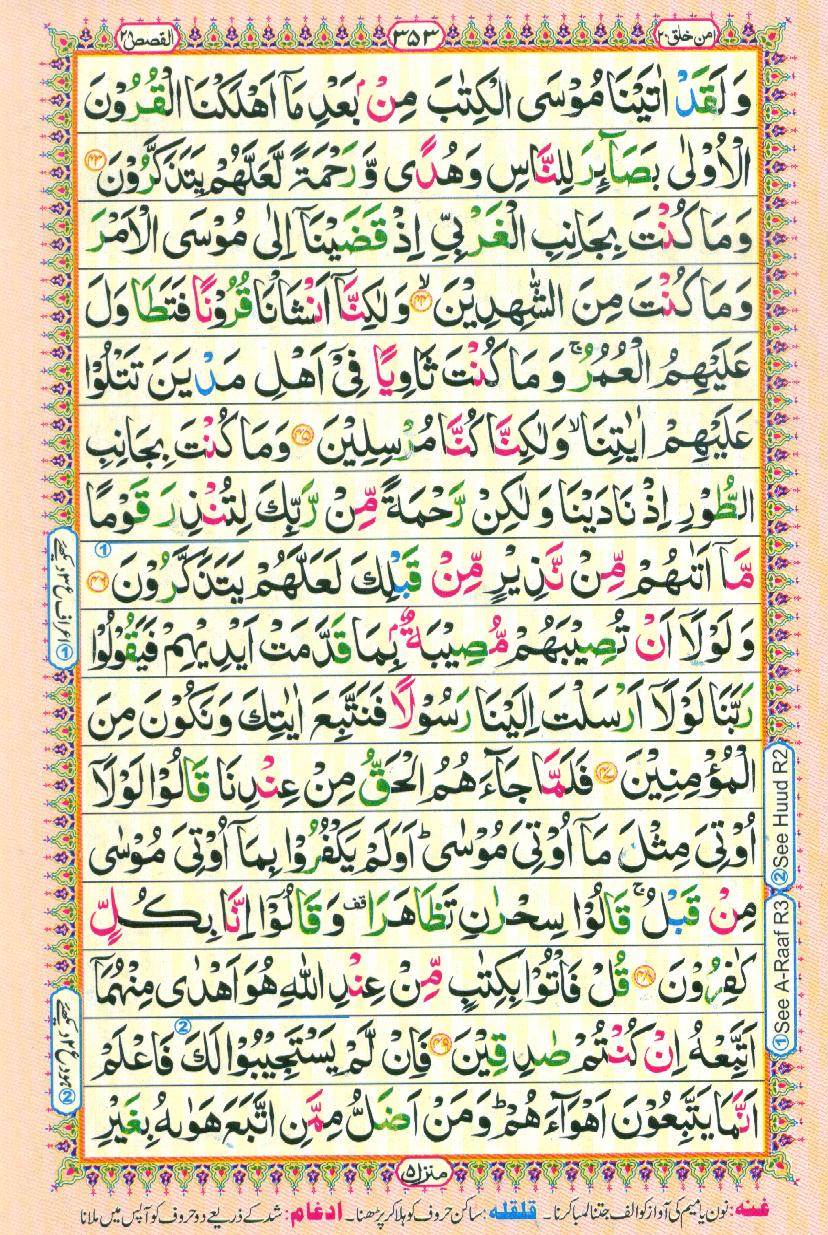 القصص ٢٨
٣٥٣
امن خلق ٢٠
وَلَقَدْ اٰتَيْنَا مُوْسَى الْكِتٰبَ مِنْۢ بَعْدِ مَآ اَهْلَكْنَا الْقُرُوْنَ
الْاُوْلٰى بَصَآئِرَ لِلنَّاسِ وَهُدًى وَّرَحْمَةً لَّعَلَّهُمْ يَتَذَكَّرُوْنَ ۝۴۳
وَمَا كُنْتَ بِجَانِبِ الْغَرْبِيِّ اِذْ قَضَيْنَآ اِلٰى مُوْسَى الْاَمْرَ
وَمَا كُنْتَ مِنَ الشّٰهِدِيْنَ ۝۴۴ۙ وَلٰكِنَّآ اَنْشَاْنَا قُرُوْنًا فَتَطَاوَلَ
عَلَيْهِمُ الْعُمُرُ ۚ وَمَا كُنْتَ ثَاوِيًا فِيْٓ اَهْلِ مَدْيَنَ تَتْلُوْا
عَلَيْهِمْ اٰيٰتِنَا ۙ وَلٰكِنَّا كُنَّا مُرْسِلِيْنَ ۝۴۵ وَمَا كُنْتَ بِجَانِبِ
الطُّوْرِ اِذْ نَادَيْنَا وَلٰكِنْ رَّحْمَةً مِّنْ رَّبِّكَ لِتُنْذِرَ قَوْمًا
مَّآ اَتٰىهُمْ مِّنْ نَّذِيْرٍ مِّنْ قَبْلِكَ لَعَلَّهُمْ يَتَذَكَّرُوْنَ ۝۴۶
①
وَلَوْلَآ اَنْ تُصِيْبَهُمْ مُّصِيْبَةٌۢ بِمَا قَدَّمَتْ اَيْدِيْهِمْ فَيَقُوْلُوْا
رَبَّنَا لَوْلَآ اَرْسَلْتَ اِلَيْنَا رَسُوْلًا فَنَتَّبِعَ اٰيٰتِكَ وَنَكُوْنَ مِنَ
الْمُؤْمِنِيْنَ ۝۴۷ فَلَمَّا جَآءَهُمُ الْحَقُّ مِنْ عِنْدِنَا قَالُوْا لَوْلَآ
اُوْتِيَ مِثْلَ مَآ اُوْتِيَ مُوْسٰى ؕ اَوَلَمْ يَكْفُرُوْا بِمَآ اُوْتِيَ مُوْسٰى
مِنْ قَبْلُ ۚ قَالُوْا سِحْرٰنِ تَظَاهَرَا ۥقف وَقَالُوْٓا اِنَّا بِكُلٍّ
كٰفِرُوْنَ ۝۴۸ قُلْ فَاْتُوْا بِكِتٰبٍ مِّنْ عِنْدِ اللّٰهِ هُوَ اَهْدٰى مِنْهُمَآ
اَتَّبِعْهُ اِنْ كُنْتُمْ صٰدِقِيْنَ ۝۴۹ فَاِنْ لَّمْ يَسْتَجِيْبُوْا لَكَ فَاعْلَمْ
②
اَنَّمَا يَتَّبِعُوْنَ اَهْوَآءَهُمْ ؕ وَمَنْ اَضَلُّ مِمَّنِ اتَّبَعَ هَوٰىهُ بِغَيْرِ
① اعراف ع ٣ دیکھیے
② ہود ع ٢ دیکھیے
②See Huud R2
①See A-Raaf R3
منزل ۵
غنه: نون یا میم کی آواز کو الف جتنا لمبا کرنا۔ قلقله: ساکن حروف کو ہلا کر پڑھنا۔ ادغام: شد کے ذریعے دو حروف کو آپس میں ملانا